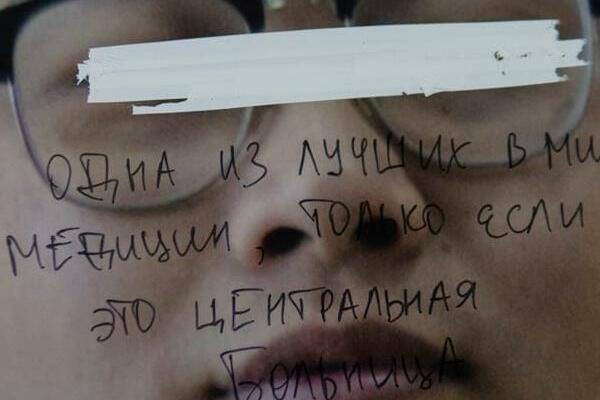 ОДНА ИЗ ЛУЧШИХ В МИ
МЕДИЦИН, ТОЛЬКО ЕСЛИ
ЭТО ЦЕНТРАЛЬНАЯ
БОЛЬНИЦА